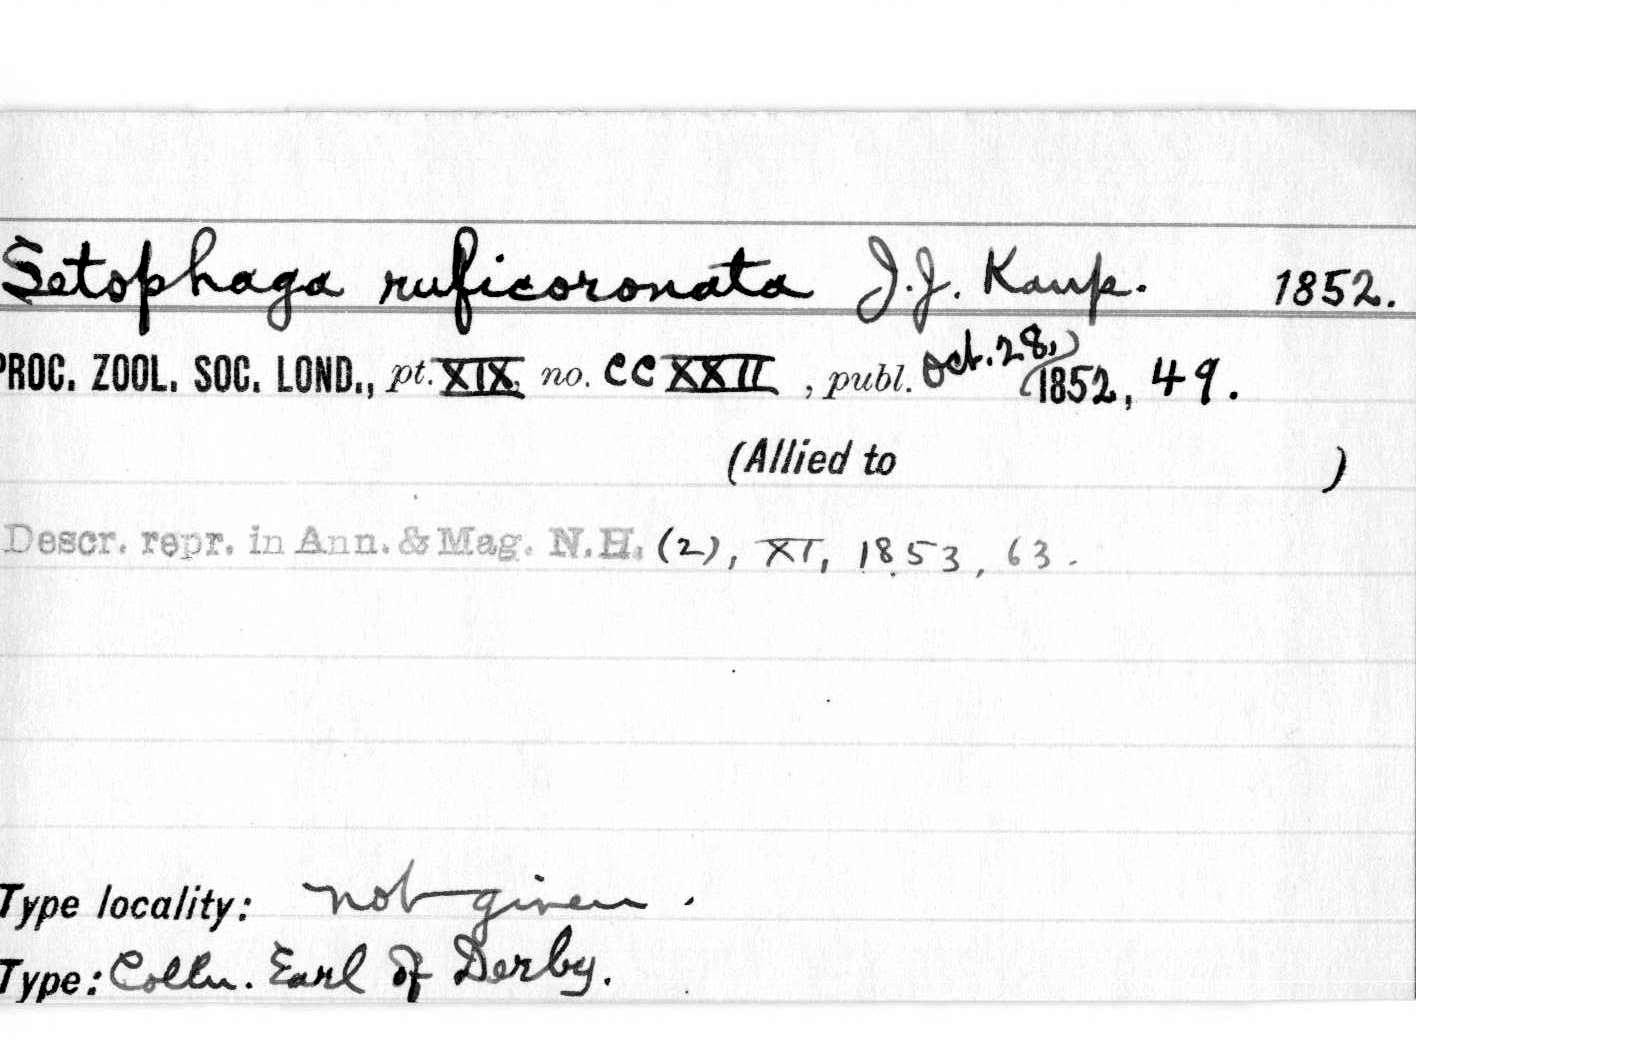 Setophaga ruficoronata J.J. Kaup. 1852.
PROC. ZOOL. SOC. LOND., pt. XIX, no. CCXXII, publ. Oct. 28, 1852, 49.
(Allied to )
Descr. repr. in Ann. & Mag. N.H. (2), XI, 1853, 63.
Type locality: not given.
Type: Colln. Earl of Derby.